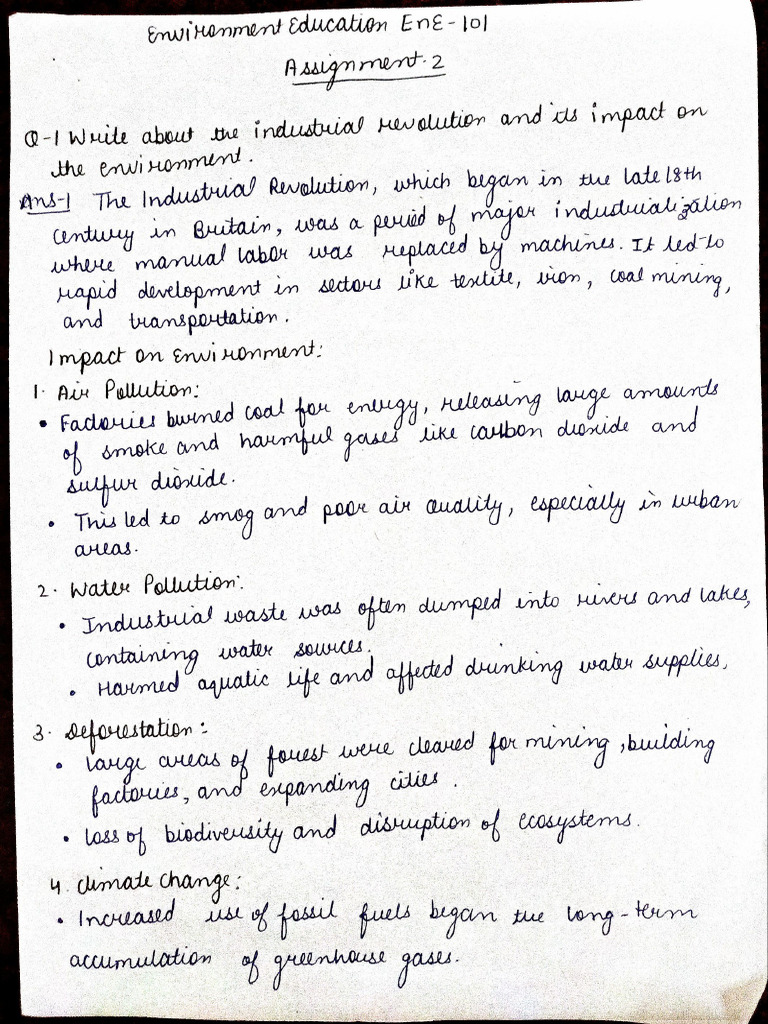 Environment Education EnE-101
Assignment-2
Q-1 Write about the industrial revolution and its impact on
the environment.
Ans-1 The Industrial Revolution, which began in the late 18th
century in Britain, was a period of major industrialization
where manual labor was replaced by machines. It led to
rapid development in sectors like textile, iron, coal mining,
and transportation.
Impact on Environment:
1. Air Pollution:
• Factories burned coal for energy, releasing large amounts
of smoke and harmful gases like carbon dioxide and
sulfur dioxide.
• This led to smog and poor air quality, especially in urban
areas.
2. Water Pollution:
• Industrial waste was often dumped into rivers and lakes,
containing water sources.
• Harmed aquatic life and affected drinking water supplies,
3. Deforestation:
• Large areas of forest were cleared for mining, building
factories, and expanding cities.
• Loss of biodiversity and disruption of ecosystems.
4. Climate Change:
• Increased use of fossil fuels began the long-term
accumulation of greenhouse gases.